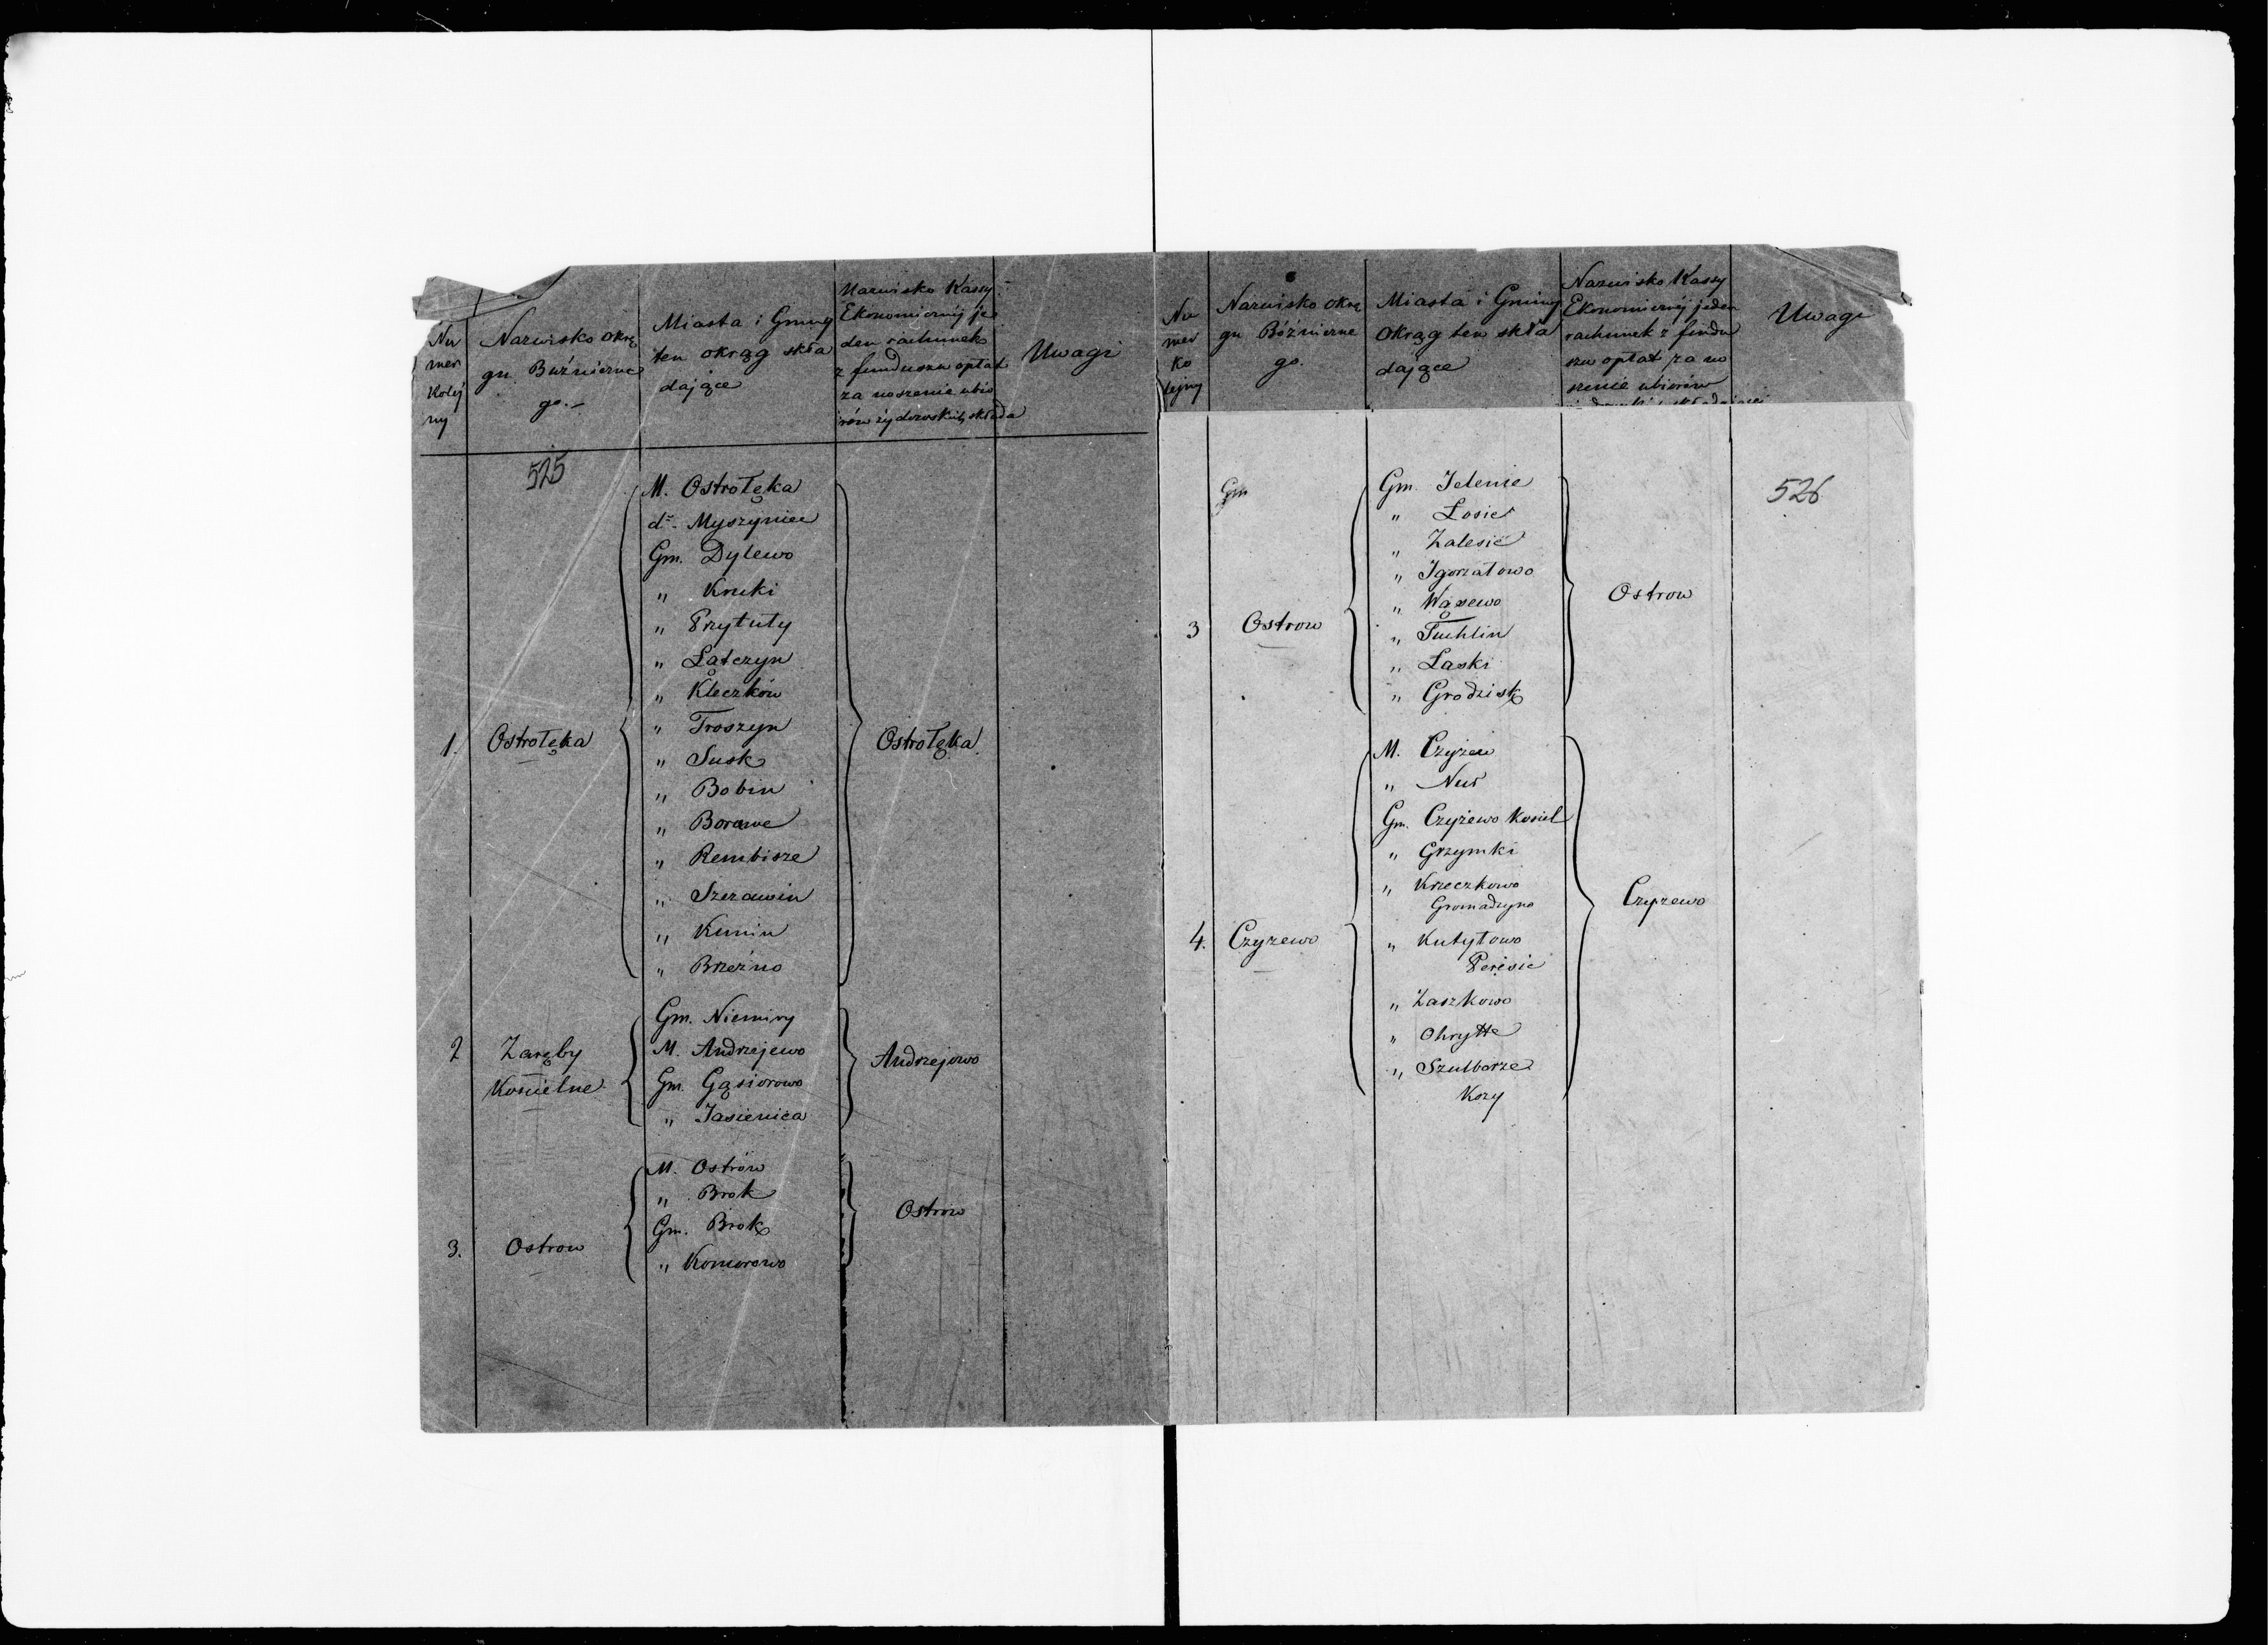 Nu
mer
Kolej
ny
Nazwisko Okrę
gu Bóźniczne
go.-
Miasta i Gminy
ten okrąg skła
dające
Nazwisko Kassy
Ekonomicznej je
den rachunek
z funduszu opłat
za noszenie ubio
rów żydowskich składa
Uwagi
525
1.
Ostrołęka
M. Ostrołęka
do. Myszyniec
Gm. Dylewo
" Kruki
" Przytuły
" Łątczyn
" Kleczków
" Troszyn
" Susk
" Bobin
" Borawe
" Rembisze
" Szczawin
" Kunin
" Brzeźno
Ostrołęka
2
Zaręby
Kościelne
Gm. Niemiry
M. Andrzejewo
Gm. Gąsiorowo
" Jasienica
Andrzejowo
3.
Ostrow
M. Ostrów
" Brok
Gm. Brok
" Komorowo
Ostrow
Nu
mer
Ko
lejny
Nazwisko Okrę
gu Bóźniczne
go.
Miasta i Gminy
Okrąg ten skła
dające
Nazwisko Kassy
Ekonomicznej jeden
rachunek z fundu
szu opłat za no
szenie ubiorów
Uwagi
526
Gm
3
Ostrow
Gm. Jelenie
" Łosie
" Zalesie
" Jgorzatowo
" Wąsewo
" Tuchlin
" Laski
" Grodzisk
Ostrow
4.
Czyzewo
M. Czyżew
" Nur
Gm. Czyżewo Kościel
" Grzymki
" Krzeczkowo
Gromadzyno
" Kutyłowo
Perysie
" Zaszkowo
" Ołtrytte
" Szulborze
Kozy
Czyzewo